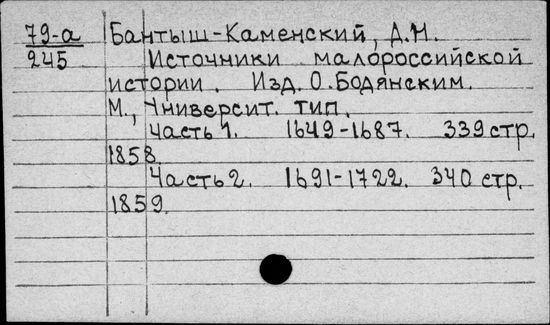 79-а Бантыш-Каменский, Д.Н.
245 Источники малороссийской
истории. Изд. О.Бодянским.
М., Университ. тип.
Часть 1. 1649-1687. 339 стр.
1858.
Часть 2. 1691-1722. 340 стр.
1859.